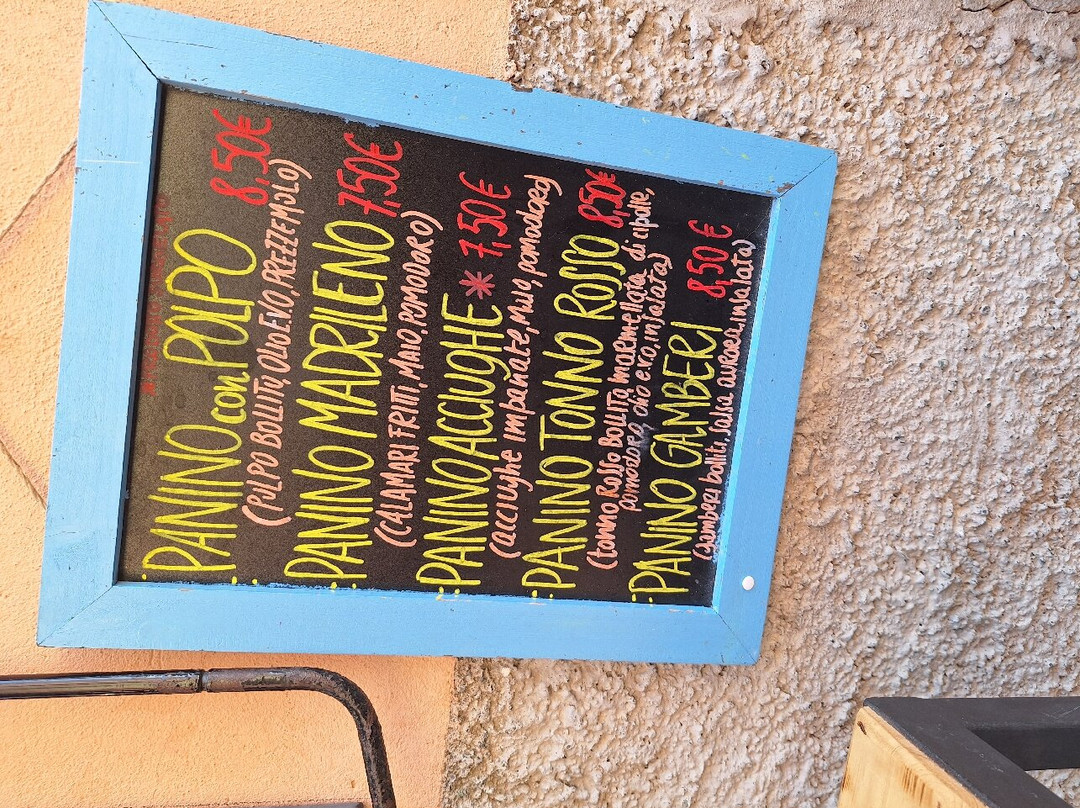 PANINO con POLPO 8,50€
(POLPO BOLLITO, OLIO EVO, PREZZEMOLO)
PANINO MADRILENO 7,50€
(CALAMARI FRITTI, MAIO, POMODORO)
PANINO ACCIUGHE * 7,50€
(acciughe impanate, maio, pomodoro)
PANINO TONNO ROSSO 8,50€
(tonno Rosso Bollito, marmellata di cipolle,
pomodoro, olio evo, insalata)
PANINO GAMBERI 8,50 €
(gamberi bolliti, salsa aurora, insalata)